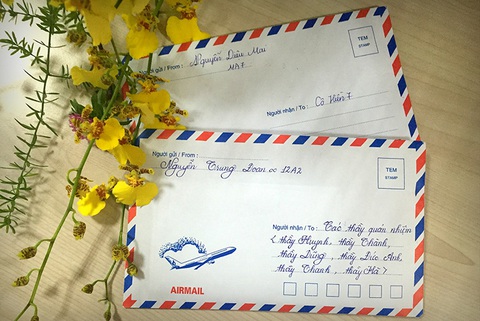 Người gửi / From: Nguyễn Diệu Mai
TEM
STAMP
Người nhận / To: Cô Hiền 7
Người gửi / From:
Nguyễn Trung Đoan 12A2
TEM
STAMP
Người nhận / To: Các thầy quản nhiệm
( thầy Huỳnh, thầy Thành,
thầy Dũng, thầy Đức Anh,
thầy Thanh, thầy Hà )
AIRMAIL